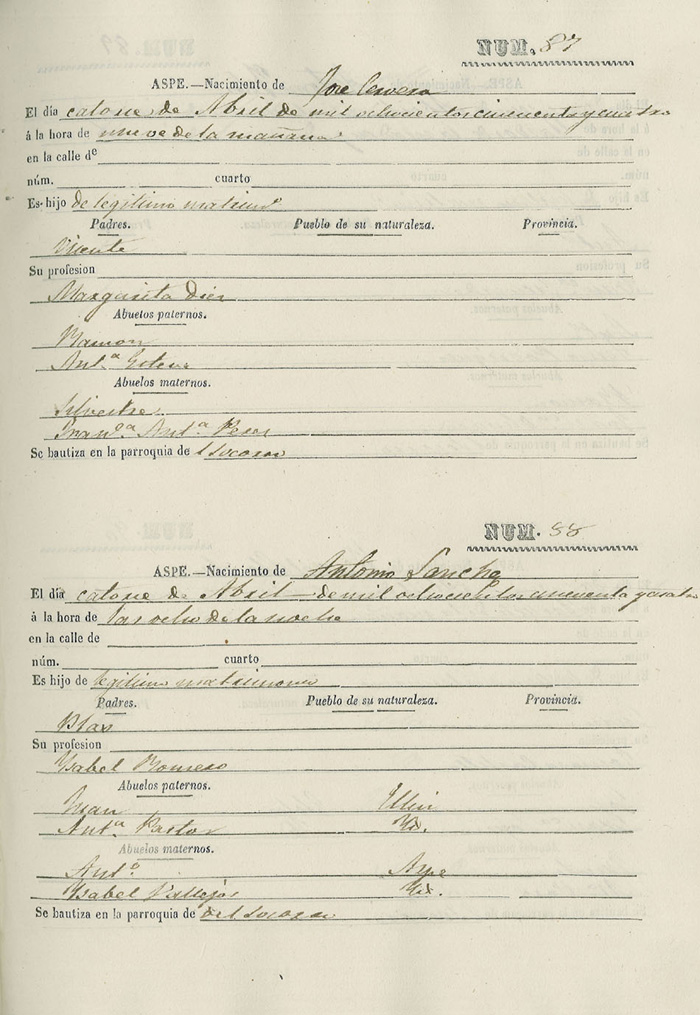 NUM. 87
ASPE.—Nacimiento de Jose Cervera
El día catorse de Abril de mil ochocientos cincuenta y cuatro
á la hora de nueve de la mañana
en la calle de
núm. cuarto
Es hijo de legitimo matrim.º
Padres. Pueblo de su naturaleza. Provincia.
Vicente
Su profesion
Margarita Dies
Abuelos paternos.
Ramon
Ant.ª Esteve
Abuelos maternos.
Silvestre
Fran.ca Ant.ª Peres
Se bautiza en la parroquia de l Socorro
NUM. 88
ASPE.—Nacimiento de Antonio Sancho
El día catorse de Abril de mil ochocientos cincuenta y cuatro
á la hora de las ocho de la noche
en la calle de
núm. cuarto
Es hijo de legitimo matrimonio
Padres. Pueblo de su naturaleza. Provincia.
Blas
Su profesion
Ysabel Romero
Abuelos paternos.
Juan Ellin
Ant.ª Pastor Yd.
Abuelos maternos.
Ant.º Aspe
Ysabel Vallejos Yd.
Se bautiza en la parroquia de del Socorro